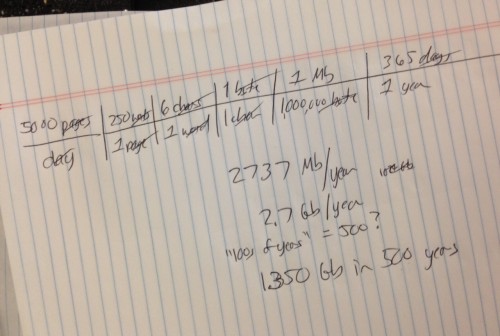 5000 pages | 250 words | 6 chars | 1 byte | 1 Mb | 365 days
day | 1 page | 1 word | 1 char | 1,000,000 byte | 1 year
2737 Mb/year
2.7 Gb/year
"100s of years" = 500?
1350 Gb in 500 years